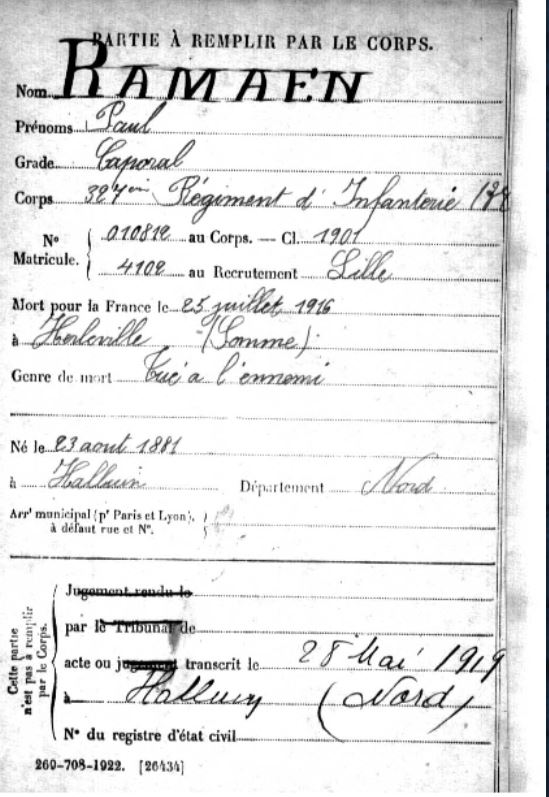 PARTIE À REMPLIR PAR LE CORPS.
Nom RAMAEN
Prénoms Paul
Grade Caporal
Corps 327ème Régiment d'Infanterie
N° Matricule. 010812 au Corps. — Cl. 1901
4102 au Recrutement Lille
Mort pour la France le 25 juillet 1916
à Herleville (Somme)
Genre de mort Tué a l'ennemi
Né le 23 aout 1881
à Halluin Département Nord
Arrt municipal (pr Paris et Lyon),
à défaut rue et N°.
Cette partie
n'est pas à remplir
par le Corps.
Jugement rendu le
par le Tribunal de
acte ou jugement transcrit le 28 Mai 1919
à Halluin (Nord)
N° du registre d'état civil
260-708-1922. [26434]